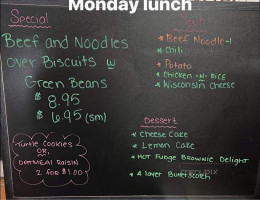 Monday lunch
Special
Beef and Noodles
over Biscuits w
Green Beans
$ 8.95
$ 6.95 (sm)
Turtle Cookies
OR
Oatmeal Raisin
2 for $1.00
Soup
* Beef Noodle
* Chili
* Potato
* Chicken -N- Rice
* Wisconsin Cheese
Dessert
* Cheese Cake
* Lemon Cake
* Hot Fudge Brownie Delight
* 4 layer Butterscotch